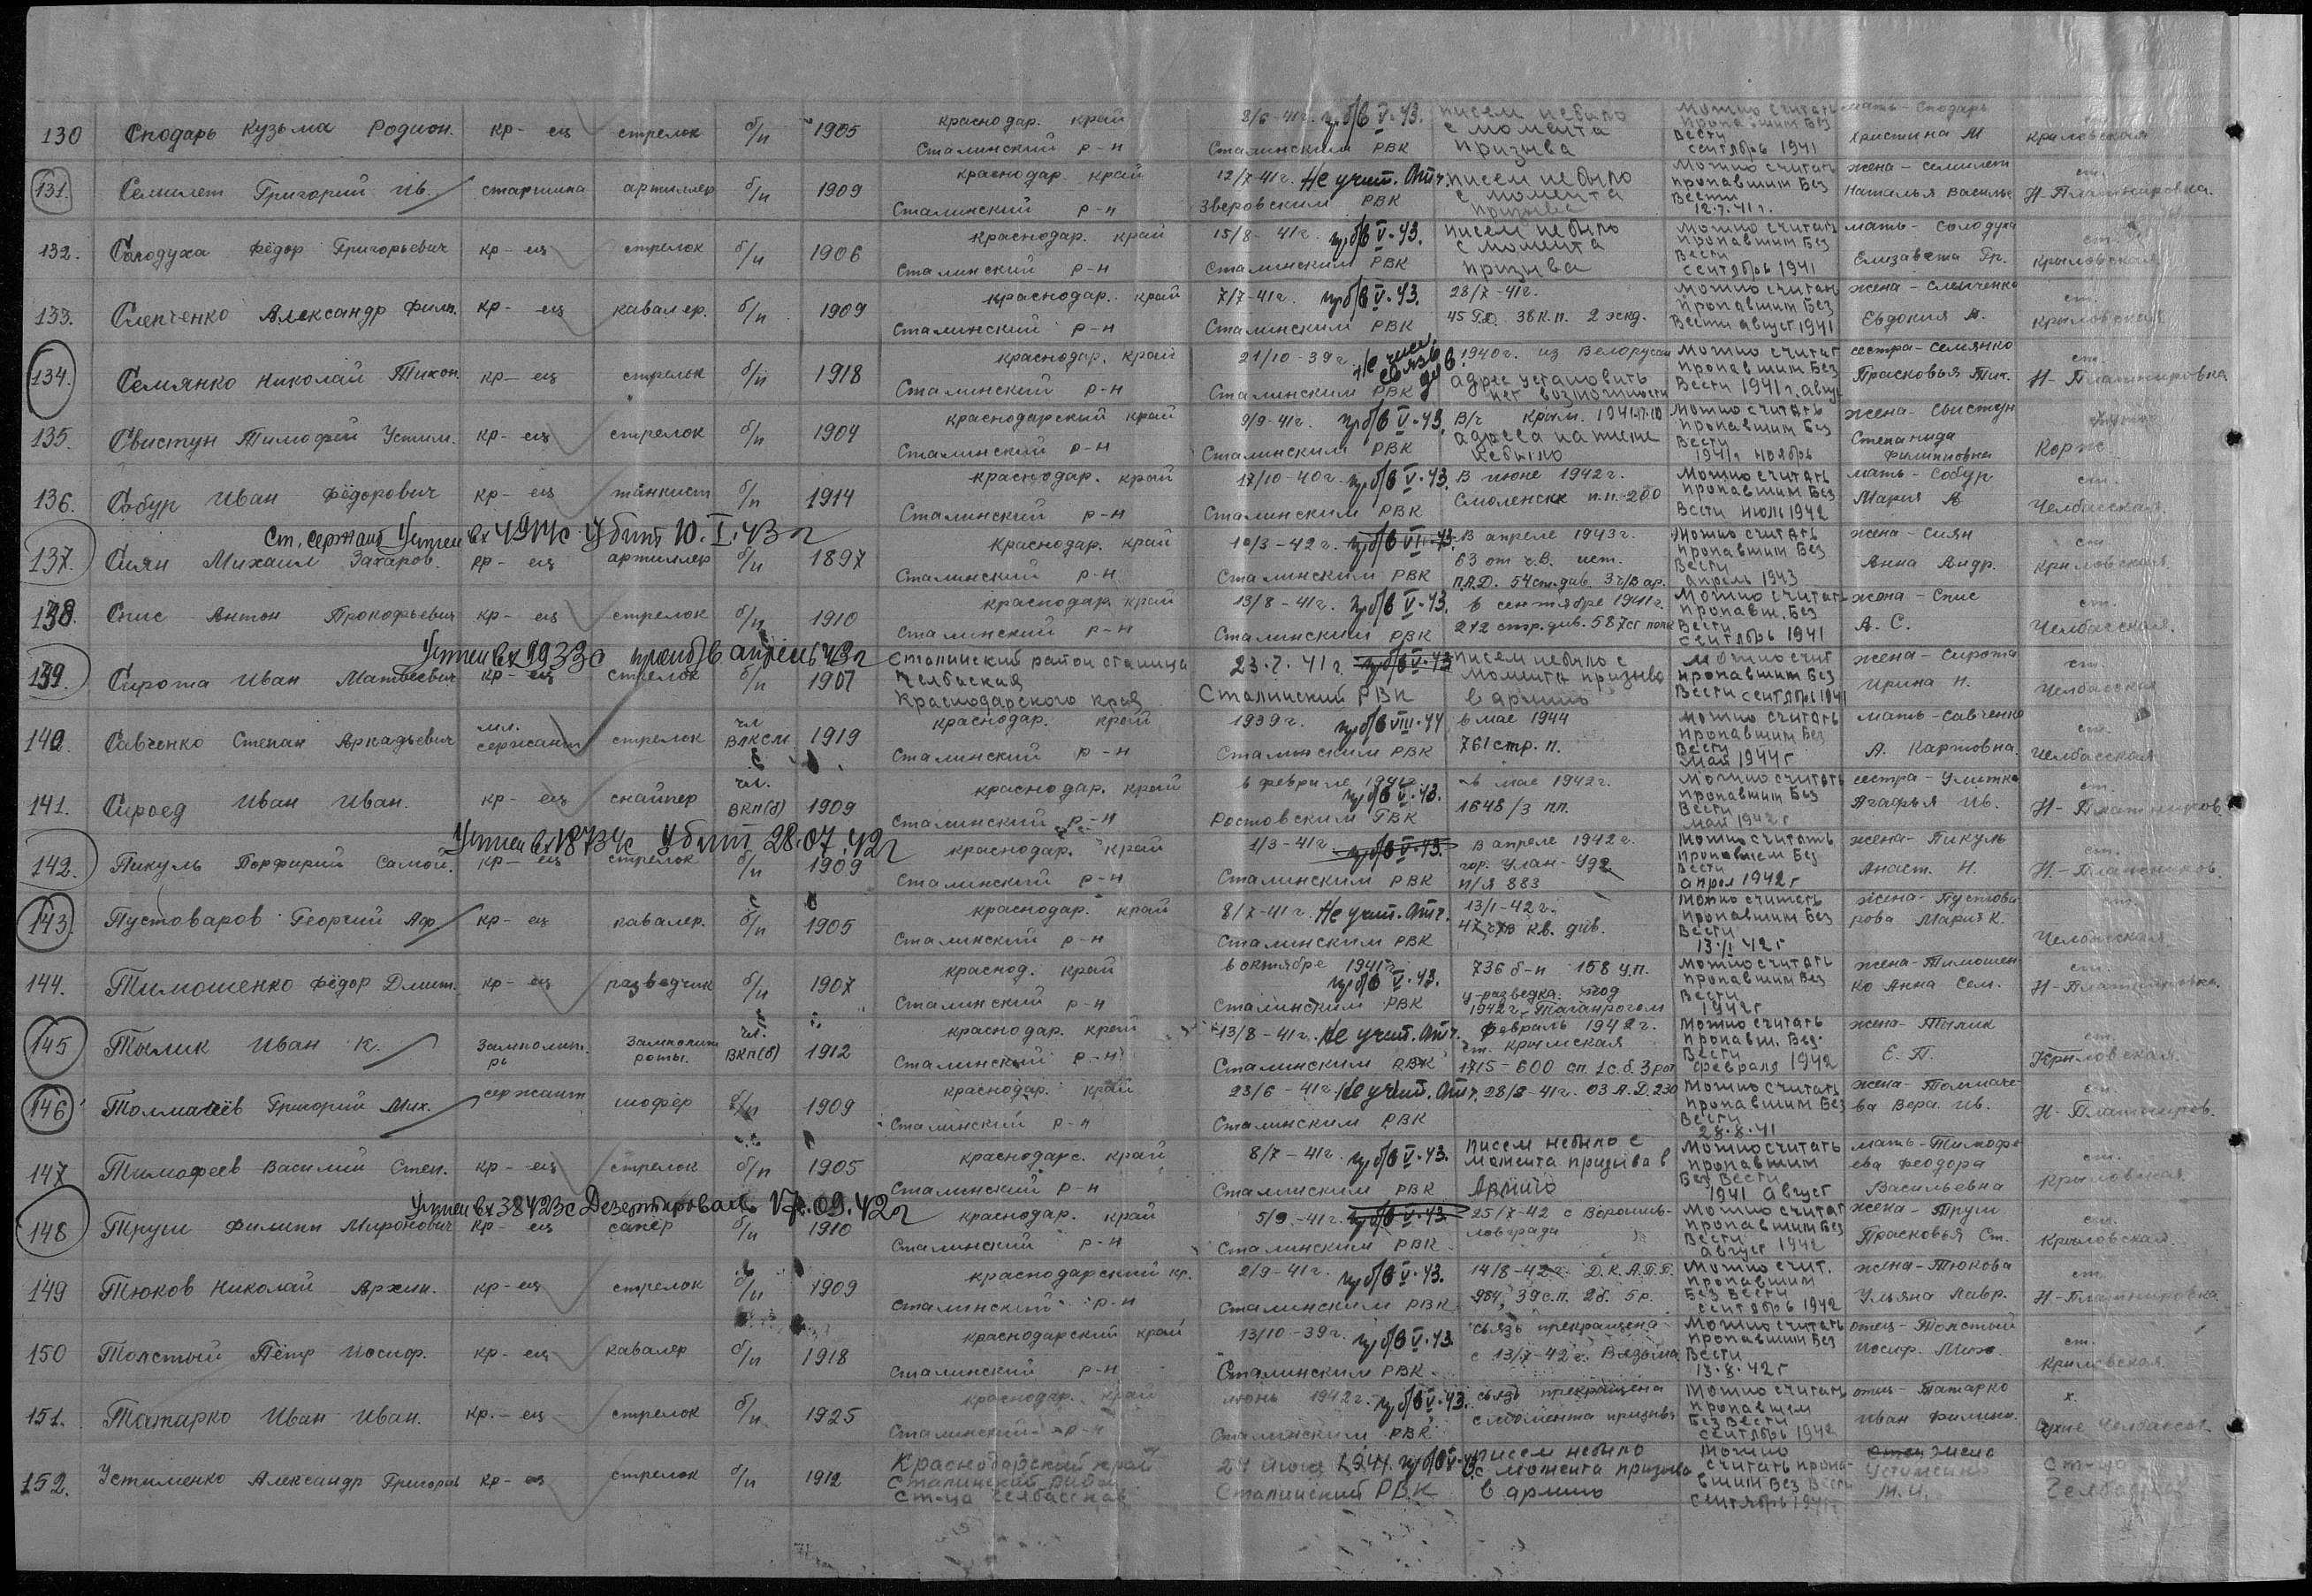 130 Сподарь Кузьма Родион. кр-ец стрелок б/п 1905 краснодар. край Сталинский р-н 8/6-41г. пр.б/в V.43. Сталинским РВК писем небыло с момента призыва можно считать пропавшим без вести сентябрь 1941 мать-Сподарь Христина М ст. крыловская
131. Семилет Григорий Ив. старшина артиллер б/п 1909 краснодар. край Сталинский р-н 12/7-41г. Не учит. Отч. Зверовским РВК писем небыло с момента призыва можно считать пропавшим без вести 12.7.41г. жена-Семилет Наталья Василье ст. Н-Платнировка.
132. Солодуха Фёдор Григорьевич кр-ец стрелок б/п 1906 краснодар. край Сталинский р-н 15/8-41г. пр.б/в V.43. Сталинским РВК писем небыло с момента призыва можно считать пропавшим без вести сентябрь 1941 мать-Солодуха Елизавета Гр. ст. крыловская
133. Слепченко Александр Фили. кр-ец кавалер. б/п 1909 краснодар. край Сталинский р-н 7/7-41г. пр.б/в V.43. Сталинским РВК 28/7-41г. 45 Г.О. 38 к.п. 2 эскд. можно считат пропавшим без вести август 1941 жена-Слепченко Евдокия А. ст. крыловская
134. Семянко Николай Тихон. кр-ец стрелок б/п 1918 краснодар. край Сталинский р-н 21/10-39г. Сталинским РВК 1940г. из Белоруссии адрес установить нет возможности можно считат пропавшим без вести 1941г. авгус сестра-Семянко Прасковья Тих. ст. Н-Платнировка
135. Свистун Тимофей Устим. кр-ец стрелок б/п 1904 краснодарский край Сталинский р-н 9/9-41г. пр.б/в V.43. Сталинским РВК В/ч Крым. адреса на письме небыло можно считать пропавшим без вести 1941г ноябрь жена-Свистун Степанида Филипповна Корж
136. Собур Иван Фёдорович кр-ец танкист б/п 1914 краснодар. край Сталинский р-н 17/10-40г. пр.б/в V.43. Сталинским РВК В июне 1942г. Смоленск п.п.-200 можно считать пропавшим без вести июль 1942 мать-Собур Мария А ст. Челбасская.
Ст. сержант Учтен вх 4911с Убит 10.I.43г
137. Сиян Михаил Захаров. кр-ец артиллер б/п 1897 Краснодар. край Сталинский р-н 10/3-42г. пр.б/в VII.43. Сталинским РВК В апреле 1943г. 63 от ч.В. ист. П.А.Д. 54 ст.див. 3 ч/в ар. можно считать пропавшим без вести апрель 1943 жена-Сиян Анна Андр. ст. крыловская.
138. Спис Антон Прокофьевич кр-ец стрелок б/п 1910 краснодар. край Сталинский р-н 13/8-41г. пр.б/в V.43. Сталинским РВК в сентябре 1941г. 212 стр.див. 587 сг полк можно считать пропавш. без вести сентябрь 1941 жена-Спис А. С. ст. Челбасская.
Учтен вх 9933с проп б/в апрель 43г
139. Сирота Иван Матвеевич кр-ец стрелок б/п 1907 Сталинский район станица Челбаская Краснодарского края 23.7.41г пр.б/в V.43 Сталинский РВК писем небыло с момента призыва в армию можно счит пропавшим без вести сентябрь 1941 жена-Сирота Ирина Н. ст. Челбасская
140. Савченко Степан Аркадьевич мл. сержант стрелок чл ВЛКСМ 1919 краснодар. край Сталинский р-н 1939г. пр.б/в VIII.44 Сталинским РВК в мае 1944 761 стр. п. можно считать пропавшим без вести май 1944г мать-Савченко А. Карповна. ст. Челбасская
141. Сыроед Иван Иван. кр-ец снайпер чл. ВКП(б) 1909 краснодар. край Сталинский р-н в феврале 1942г. пр.б/в V.43. Ростовским ГВК в мае 1942г. 1648/3 пп. можно считать пропавшим без вести май 1942г сестра-Улитка Агафья Ив. ст. Н-Платниров.
Учтен вх 18734с Убит 28.07.42г
142. Пикуль Порфирий Самой. кр-ец стрелок б/п 1909 краснодар. край Сталинский р-н 1/3-41г. пр.б/в V.43. Сталинским РВК В апреле 1942г. гор. Улан-Удэ п/я 883 можно считать пропавшем без вести апрел 1942г жена-Пикуль Анаст. Н. ст. Н-Платниров.
143. Пустоваров Георгий Аф кр-ец кавалер. б/п 1905 краснодар. край Сталинский р-н 8/7-41г. Не учит. Отч. Сталинским РВК 13/1-42г. 47 кв. див. можно считать пропавшим без вести 13.I 42г жена-Пустовирова Мария К. ст. Челбасская
144. Тимошенко Фёдор Дмит. кр-ец разведчик б/п 1907 краснод. край Сталинский р-н в октябре 1941г. пр.б/в V.43. Сталинским РВК 736 б-н 158 у.п. у-разведка. под 1942г. Таганрогом можно считать пропавшим без вести 1942г жена-Тимошенко Анна Сем. ст. Н-Платнировка.
145 Тылик Иван К. Замполит. рь Замполит роты. чл. ВКП(б) 1912 краснодар. край Сталинский р-н 13/8-41г. Не учит. Отч. Сталинским РВК февраль 1942г. ст. Крымская 1715-600 сп. 1с.б. 3рот можно считать пропавш. без вести февраля 1942 жена-Тылик Е. П. ст. Крыловская.
146 Толмачёв Григорий Мих. сержант шофёр б/п 1909 краснодар. край Сталинский р-н 23/6-41г. Не учит. Отч. Сталинским РВК 28/8-41г. 03 А.Д. 230 можно считать пропавшим без вести 28.8.41 жена-Толмачева Вера Ив. ст. Н-Платниров.
147 Тимофеев Василий Степ. кр-ец стрелок б/п 1905 краснодарс. край Сталинский р-н 8/7-41г. пр.б/в V.43. Сталинским РВК писем небыло с момента призыва в Армию можно считать пропавшим без вести 1941 август мать-Тимофеева Феодора Васильевна ст. крыловская
Учтен вх 38423с Дезертировал 17.09.42г
148 Труш Филипп Миронович кр-ец сапер б/п 1910 краснодар. край Сталинский р-н 5/9-41г. пр.б/в V.43. Сталинским РВК 25/7-42 с Ворошиловграда можно считат пропавшим без вести август 1942 жена-Труш Прасковья Ст. ст. Крыловская.
149 Тюков Николай Архип. кр-ец стрелок б/п 1909 краснодарский кр. Сталинский р-н 2/9-41г. пр.б/в V.43. Сталинским РВК 14/8-42г. Д.К.А.П.Г. 984, 39 с.п. 2б. 5р. можно счит. пропавшим без вести сентябрь 1942 жена-Тюкова Ульяна Лавр. ст. Н-Платнировка
150 Толстый Пётр Иосиф. кр-ец кавалер б/п 1918 краснодарский край Сталинский р-н 13/10-39г. пр.б/в V.43. Сталинским РВК связь прекращена с 13/7-42г. Вязьма можно считать пропавшим без вести 13.8.42г отец-Толстый Иосиф. Мих. ст. крыловская
151. Татарко Иван Иван. кр.-ец стрелок б/п 1925 краснодар. край Сталинский р-н июнь 1942г. пр.б/в V.43. Сталинским РВК связь прекращена с момента призыва можно считать пропавшем без вести сентябрь 1942 отец-Татарко Иван Филипп. х.
152. Устименко Александр Григорьев кр-ец стрелок б/п 1912 Краснодарский край Сталинский район ст-ца Челбасская 24 июля 1941 пр.б/в V.43 Сталинский РВК писем небыло с момента призыва в армию можно считать пропавшим без вести сентябрь 1941г жена Устименко М.И. ст-ца Челбасская